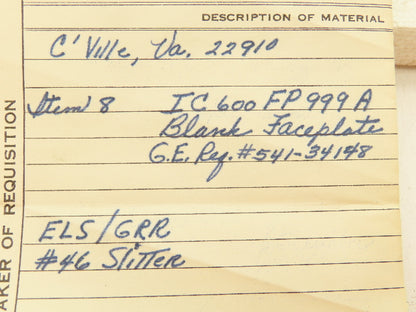 DESCRIPTION OF MATERIAL
C'Ville, Va. 22910
Item 8 IC 600 FP 999 A
Blank Faceplate
G.E. Req. #541-34148
ELS/GRR
#46 Slitter
AKER OF REQUISITION